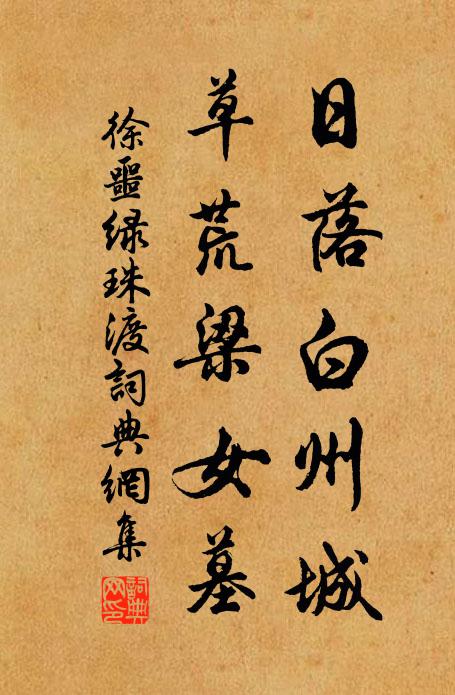 日落白州城
草荒梁女墓
徐噩绿珠渡詞典網集
詞典網印